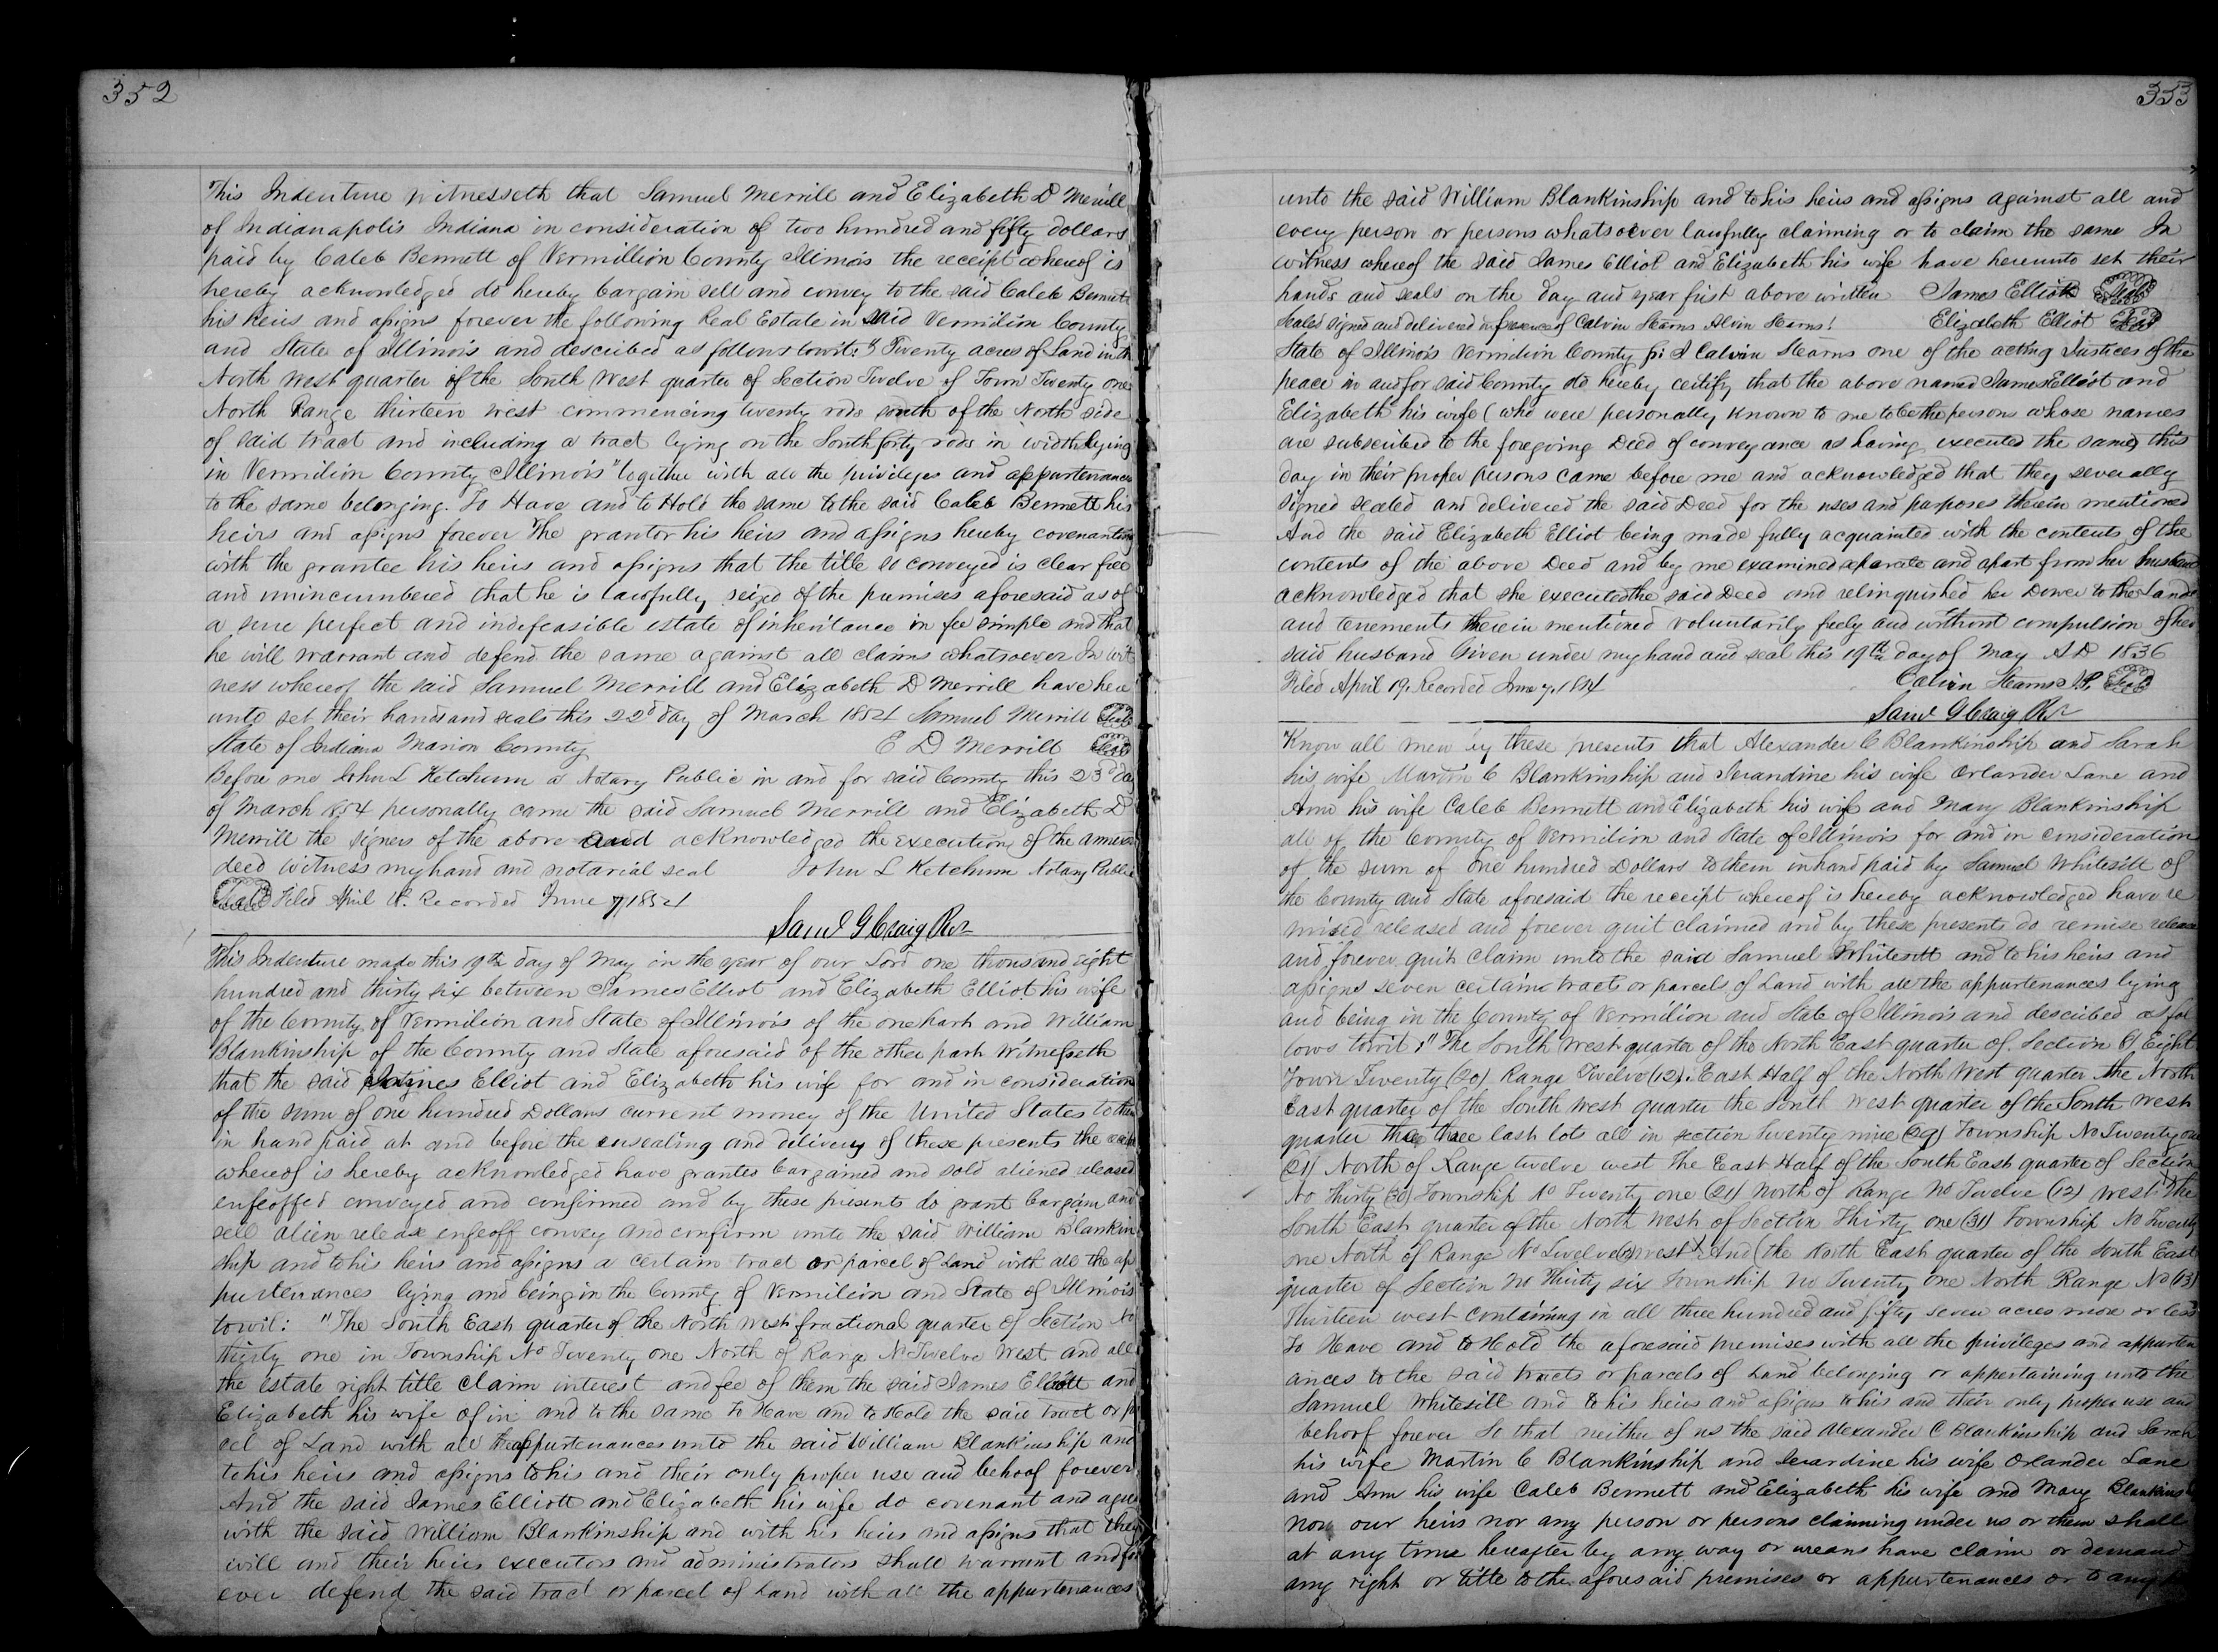 352
This Indenture witnesseth that Samuel Merrill and Elizabeth D Merrill
of Indianapolis Indiana in consideration of two hundred and fifty dollars
paid by Caleb Bennett of Vermillion County Illinois the receipt whereof is
hereby acknowledged do hereby bargain sell and convey to the said Caleb Bennett
his heirs and assigns forever the following Real Estate in said Vermilion County
and State of Illinois and described as follows towit: "Twenty acres of Land in the
North West quarter of the South West quarter of Section Twelve of Town Twenty one
North Range thirteen west commencing twenty rods south of the North side
of said tract and including a tract lying on the South forty rods in width lying
in Vermilion County Illinois" together with all the privileges and appurtenances
to the same belonging. To Have and to Hold the same to the said Caleb Bennett his
heirs and assigns forever The grantor his heirs and assigns hereby covenanting
with the grantee his heirs and assigns that the title so conveyed is clear free
and unincumbered that he is lawfully seized of the premises aforesaid as of
a sure perfect and indefeasible estate of inheritance in fee simple and that
he will warrant and defend the same against all claims whatsoever In wit
ness whereof the said Samuel Merrill and Elizabeth D Merrill have here
unto set their hands and seals this 22d day of March 1854 Samuel Merrill Seal
State of Indiana Marion County E D Merrill Seal
Before me John L Ketchum a Notary Public in and for said County this 23d day
of March 1854 personally came the said Samuel Merrill and Elizabeth D
Merrill the signers of the above and acknowledged the execution of the annexed
deed witness my hand and notarial seal John L Ketchum Notary Public
Seal Filed April 18. Recorded June 7, 1854
Saml G Craig Rcr
This Indenture made this 19th day of May in the year of our Lord one thousand eight
hundred and thirty six between James Elliot and Elizabeth Elliot his wife
of the County of Vermilion and State of Illinois of the one part and William
Blankinship of the County and State aforesaid of the other part Witnesseth
that the said James Elliot and Elizabeth his wife for and in consideration
of the sum of one hundred Dollars current money of the United States to them
in hand paid at and before the ensealing and delivery of these presents the
whereof is hereby acknowledged have granted bargained and sold aliened released
enfeoffed conveyed and confirmed and by these presents do grant bargain and
sell alien release enfeoff convey and confirm unto the said William Blankin
ship and to his heirs and assigns a certain tract or parcel of Land with all the ap
purtenances lying and being in the County of Vermilion and State of Illinois
towit: "The South East quarter of the North West fractional quarter of Section No
thirty one in Township No Twenty one North of Range No Twelve West and all
the estate right title claim interest and fee of them the said James Elliott and
Elizabeth his wife of in and to the same To Have and to Hold the said tract or par
cel of Land with all the appurtenances unto the said William Blankinship and
to his heirs and assigns to his and their only proper use and behoof forever
And the said James Elliott and Elizabeth his wife do covenant and agree
with the said William Blankinship and with his heirs and assigns that they
will and their heirs executors and administrators shall warrant and for
ever defend the said tract or parcel of Land with all the appurtenances
353
unto the said William Blankinship and to his heirs and assigns against all and
every person or persons whatsoever lawfully claiming or to claim the same In
witness whereof the said James Elliot and Elizabeth his wife have hereunto set their
hands and seals on the day and year first above written James Elliott Seal
Sealed signed and delivered in presence of Calvin Stearns Alvin Stearns! Elizabeth Elliot Seal
State of Illinois Vermilion County ss: I Calvin Stearns one of the acting Justices of the
peace in and for said County do hereby certify that the above named James Elliot and
Elizabeth his wife (who were personally known to me to be the persons whose names
are subscribed to the foregoing Deed of conveyance as having executed the same) this
day in their proper persons came before me and acknowledged that they severally
signed sealed and delivered the said Deed for the uses and purposes therein mentioned
And the said Elizabeth Elliot being made fully acquainted with the contents of the
contents of the above Deed and by me examined separate and apart from her husband
acknowledged that she executed the said Deed and relinquished her Dower to the Lands
and tenements therein mentioned voluntarily freely and without compulsion of her
said husband Given under my hand and seal this 19th day of May A D 1836
Filed April 19. Recorded June 7, 1854 Calvin Stearns J.P. Seal
Saml G Craig Rcr
Know all men by these presents that Alexander C Blankinship and Sarah
his wife Martin C Blankinship and his wife Orlander Lane and
Ann his wife Caleb Bennett and Elizabeth his wife and Mary Blankinship
all of the County of Vermilion and State of Illinois for and in consideration
of the sum of one hundred Dollars to them in hand paid by Samuel Whitesill of
the County and State aforesaid the receipt whereof is hereby acknowledged have re
mised released and forever quit claimed and by these presents do remise release
and forever quit claim unto the said Samuel Whitesill and to his heirs and
assigns seven certain tracts or parcels of Land with all the appurtenances lying
and being in the County of Vermilion and State of Illinois and described as fol
lows towit: "The South West quarter of the North East quarter of Section (8) Eight
Town Twenty (20) Range Twelve (12). East Half of the North West quarter the North
East quarter of the South West quarter the South West quarter of the South West
quarter the three last lots all in section Twenty nine (29) Township No Twenty one
(21) North of Range twelve west The East Half of the South East quarter of Section
No Thirty (30) Township No Twenty one (21) North of Range No Twelve (12) West The
South East quarter of the North West of Section Thirty one (31) Township No Twenty
one North of Range No Twelve (12) West And (the North East quarter of the South East
quarter of Section No Thirty six Township No Twenty one North Range No (13)
Thirteen west containing in all three hundred and fifty seven acres more or less
To Have and to Hold the aforesaid premises with all the privileges and appurten
ances to the said tracts or parcels of Land belonging or appertaining unto the
Samuel Whitesill and to his heirs and assigns to his and their only proper use and
behoof forever So that neither of us the said Alexander C Blankinship and Sarah
his wife Martin C Blankinship and his wife Orlander Lane
and Ann his wife Caleb Bennett and Elizabeth his wife and Mary Blankins
nor our heirs nor any person or persons claiming under us or them shall
at any time hereafter by any way or means have claim or demand
any right or title to the aforesaid premises or appurtenances or to any